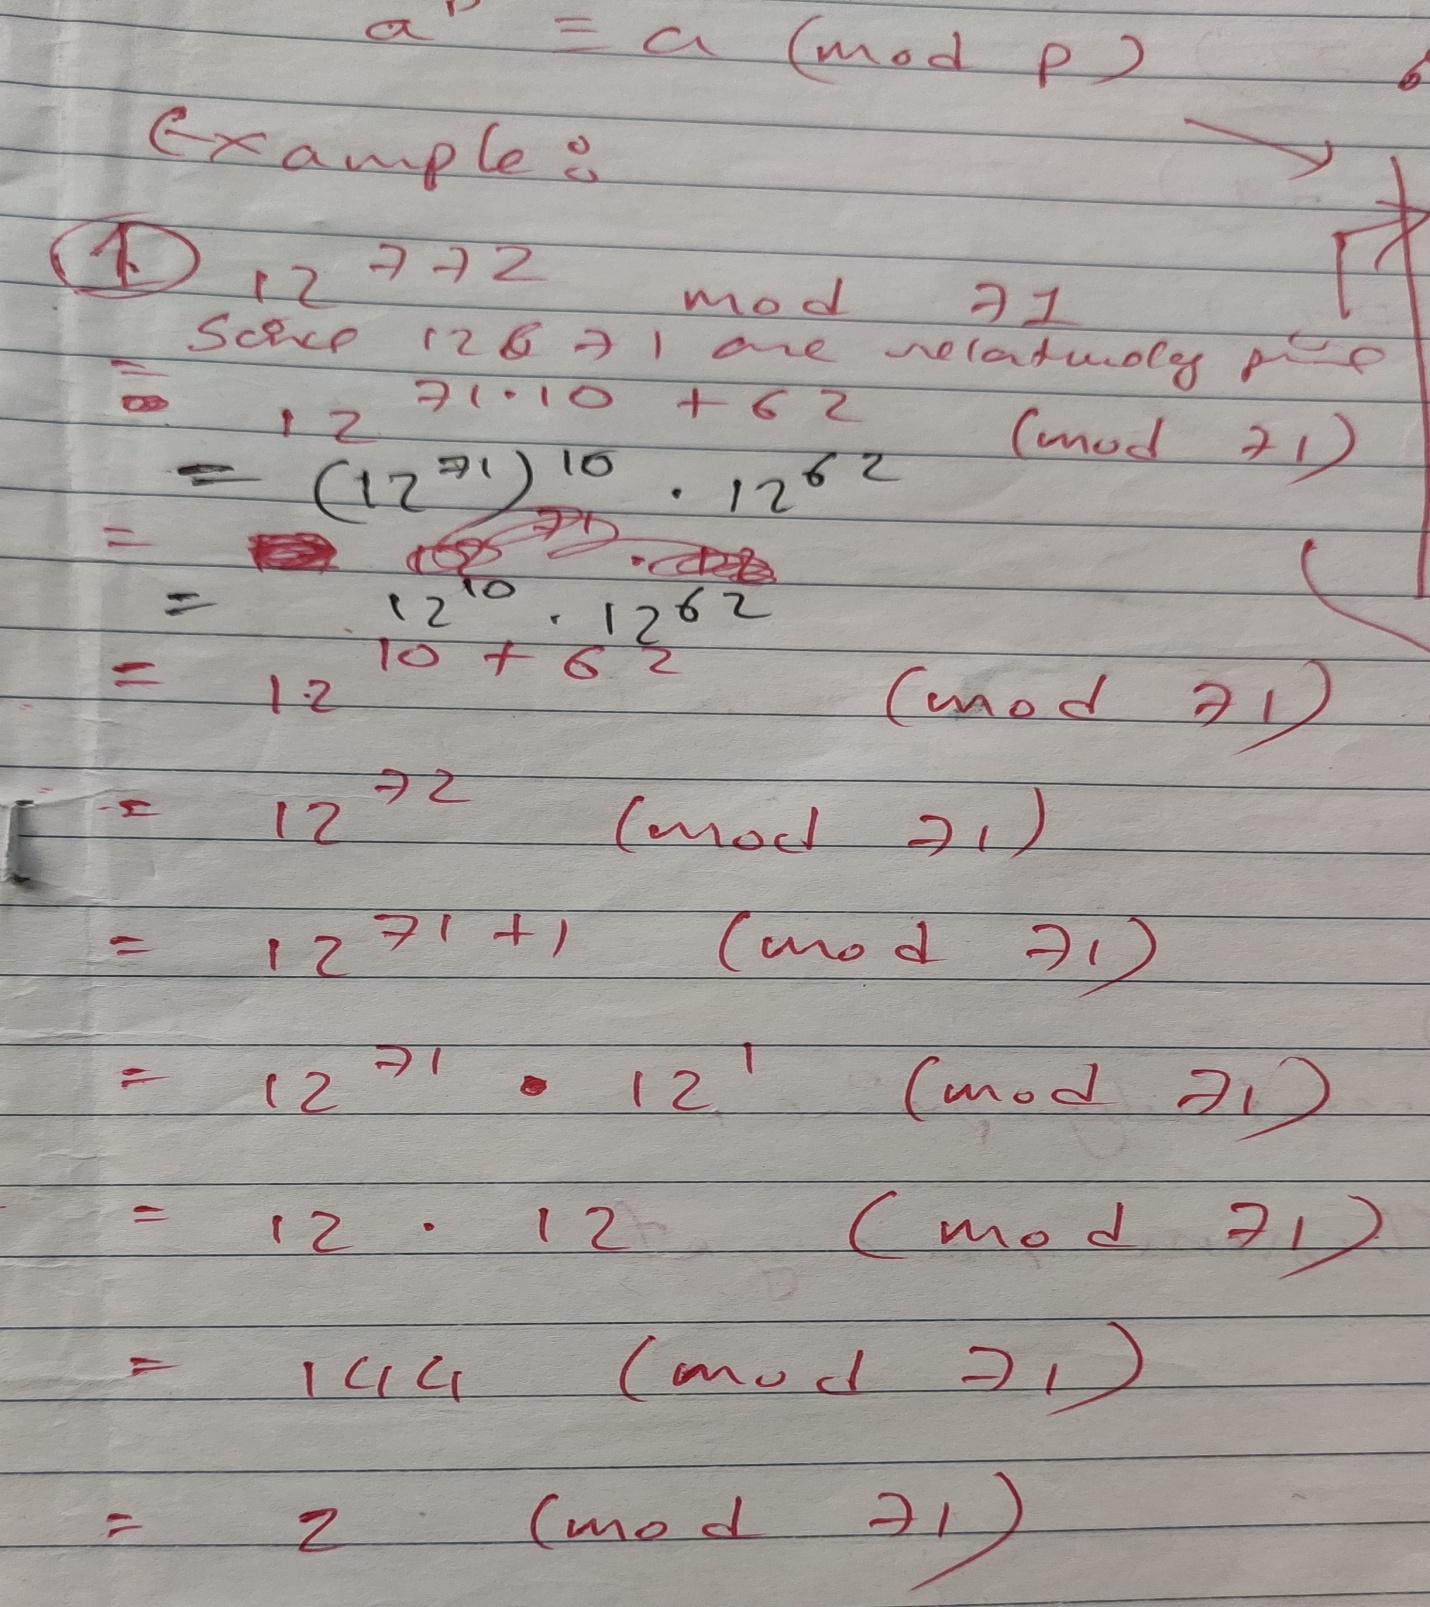 a^p = a (mod p)
Example:
1. 12^772 mod 71
Since 12 & 71 are relatively prime
= 12^71·10 + 62 (mod 71)
= (12^71)^10 · 12^62
=
= 12^10 · 12^62
= 12^10 + 62 (mod 71)
= 12^72 (mod 71)
= 12^71+1 (mod 71)
= 12^71 · 12^1 (mod 71)
= 12 · 12 (mod 71)
= 144 (mod 71)
= 2 (mod 71)